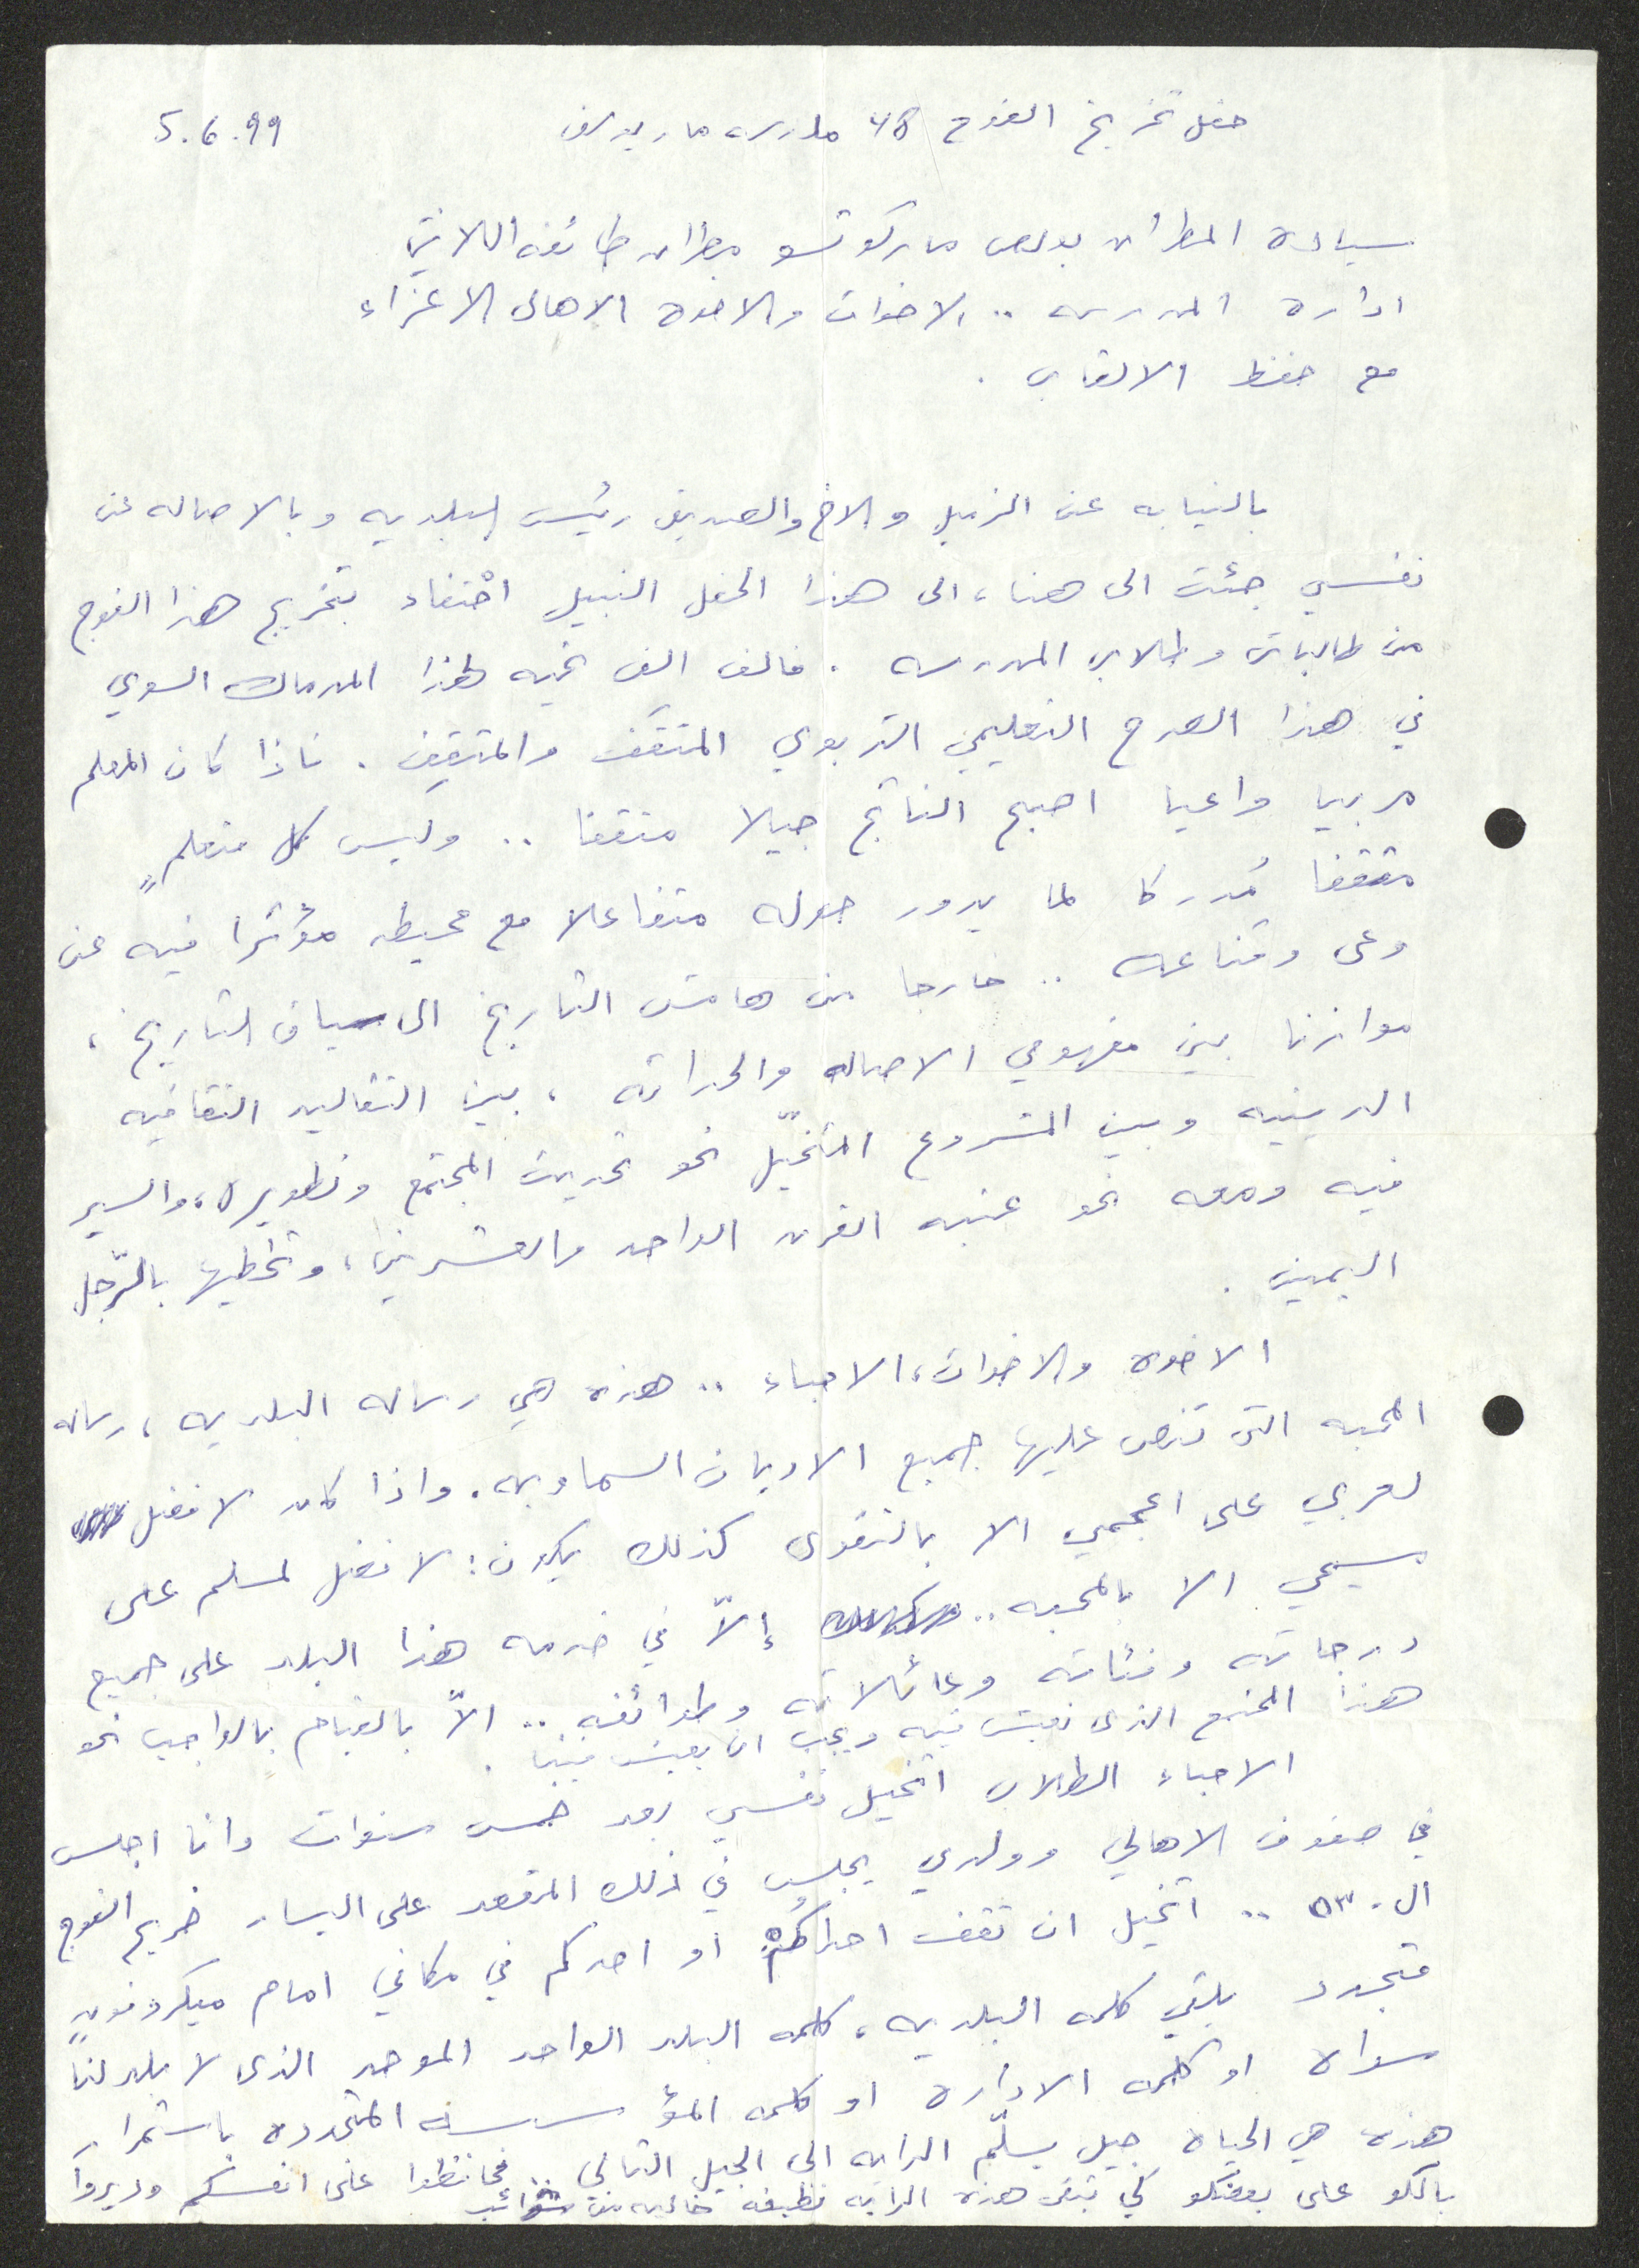 حفل تخريج الفوج 48 مدرسه مار يوسف 5.6.99
سيادة المطران بولص ماركوتسو مطران طائفه اللاتين
ادارة المدرسه .. الاخوات والاخوة الاهالي الاعزاء
مع حفظ الالقاب .
بالنيابه عن الزميل والاخ والصديق رئيس البلديه وبالاصاله عن
نفسي جئت الى هنا، الى هذا الحفل النبيل احتفاء بتخريج هذا الفوج
من طالبات وطلاب المدرسه . فالف الف تحيه لهذا المدماك السوي
في هذا الصرح التعليمي التربوي المثقَّف والمثقِّف . فاذا كان المعلم
مربيا واعيا اصبح الناتج جيلا مثقفا .. وليس كل متعلمٍ
مثقفا مُدركا لما يدور حوله متفاعلا مع محيطه مؤثرا فيه عن
وعي وقناعه .. خارجا من هامش التاريخ الى سياق التاريخ ،
موازنا بين مفهومي الاصاله والحداثه ، بين التقاليد الثقافيه
الدينيه وبين المشروع المتخيّل نحو تحديث المجتمع وتطويره، والسير
فيه ومعه نحو عتبه القرن الواحد والعشرين، وتخطيها بالرّجل
اليمين .
الاخوه والاخوات، الاحباء .. هذه هي رساله البلديه ، رساله
المحبه التي تنص عليها جميع الاديان السماويه. واذا كان لا فضل
لعربي على اعجمي الا بالتقوى كذلك يكون: لا فضل لمسلم على
مسيحي الا بالمحبه .. إلاّ في خدمه هذا البلد على جميع
درجاته وفئاته وعائلاته وطوائفه .. الاّ بالقيام بالواجب نحو
هذا المجتمع الذي نعيش فيه ويجب ان يعيش فينا .
الاحباء الطلاب اتخيل نفسي بعد خمس سنوات وانا اجلس
في صفوف الاهالي وولدي يجلس في ذلك المقعد على اليسار خريج الفوج
ال ٥٣ .. اتخيل ان تقف احداكُنَّ او احدكم في مكاني امام ميكروفونٍ
متجدد يلقي كلمه البلديه ، كلمه البلد الواحد الموحد الذي لا بلد لنا
سواه او كلمه الاداره او كلمه المؤسسه المتجدده باستمرار
هذه هي الحياه جيل يسلّم الرايه الى الجيل التالي .. فحافظوا على انفسكم وديروا
بالكو على بعضكو كي تبقى هذه الرايه نظيفه خاليه من شوائب